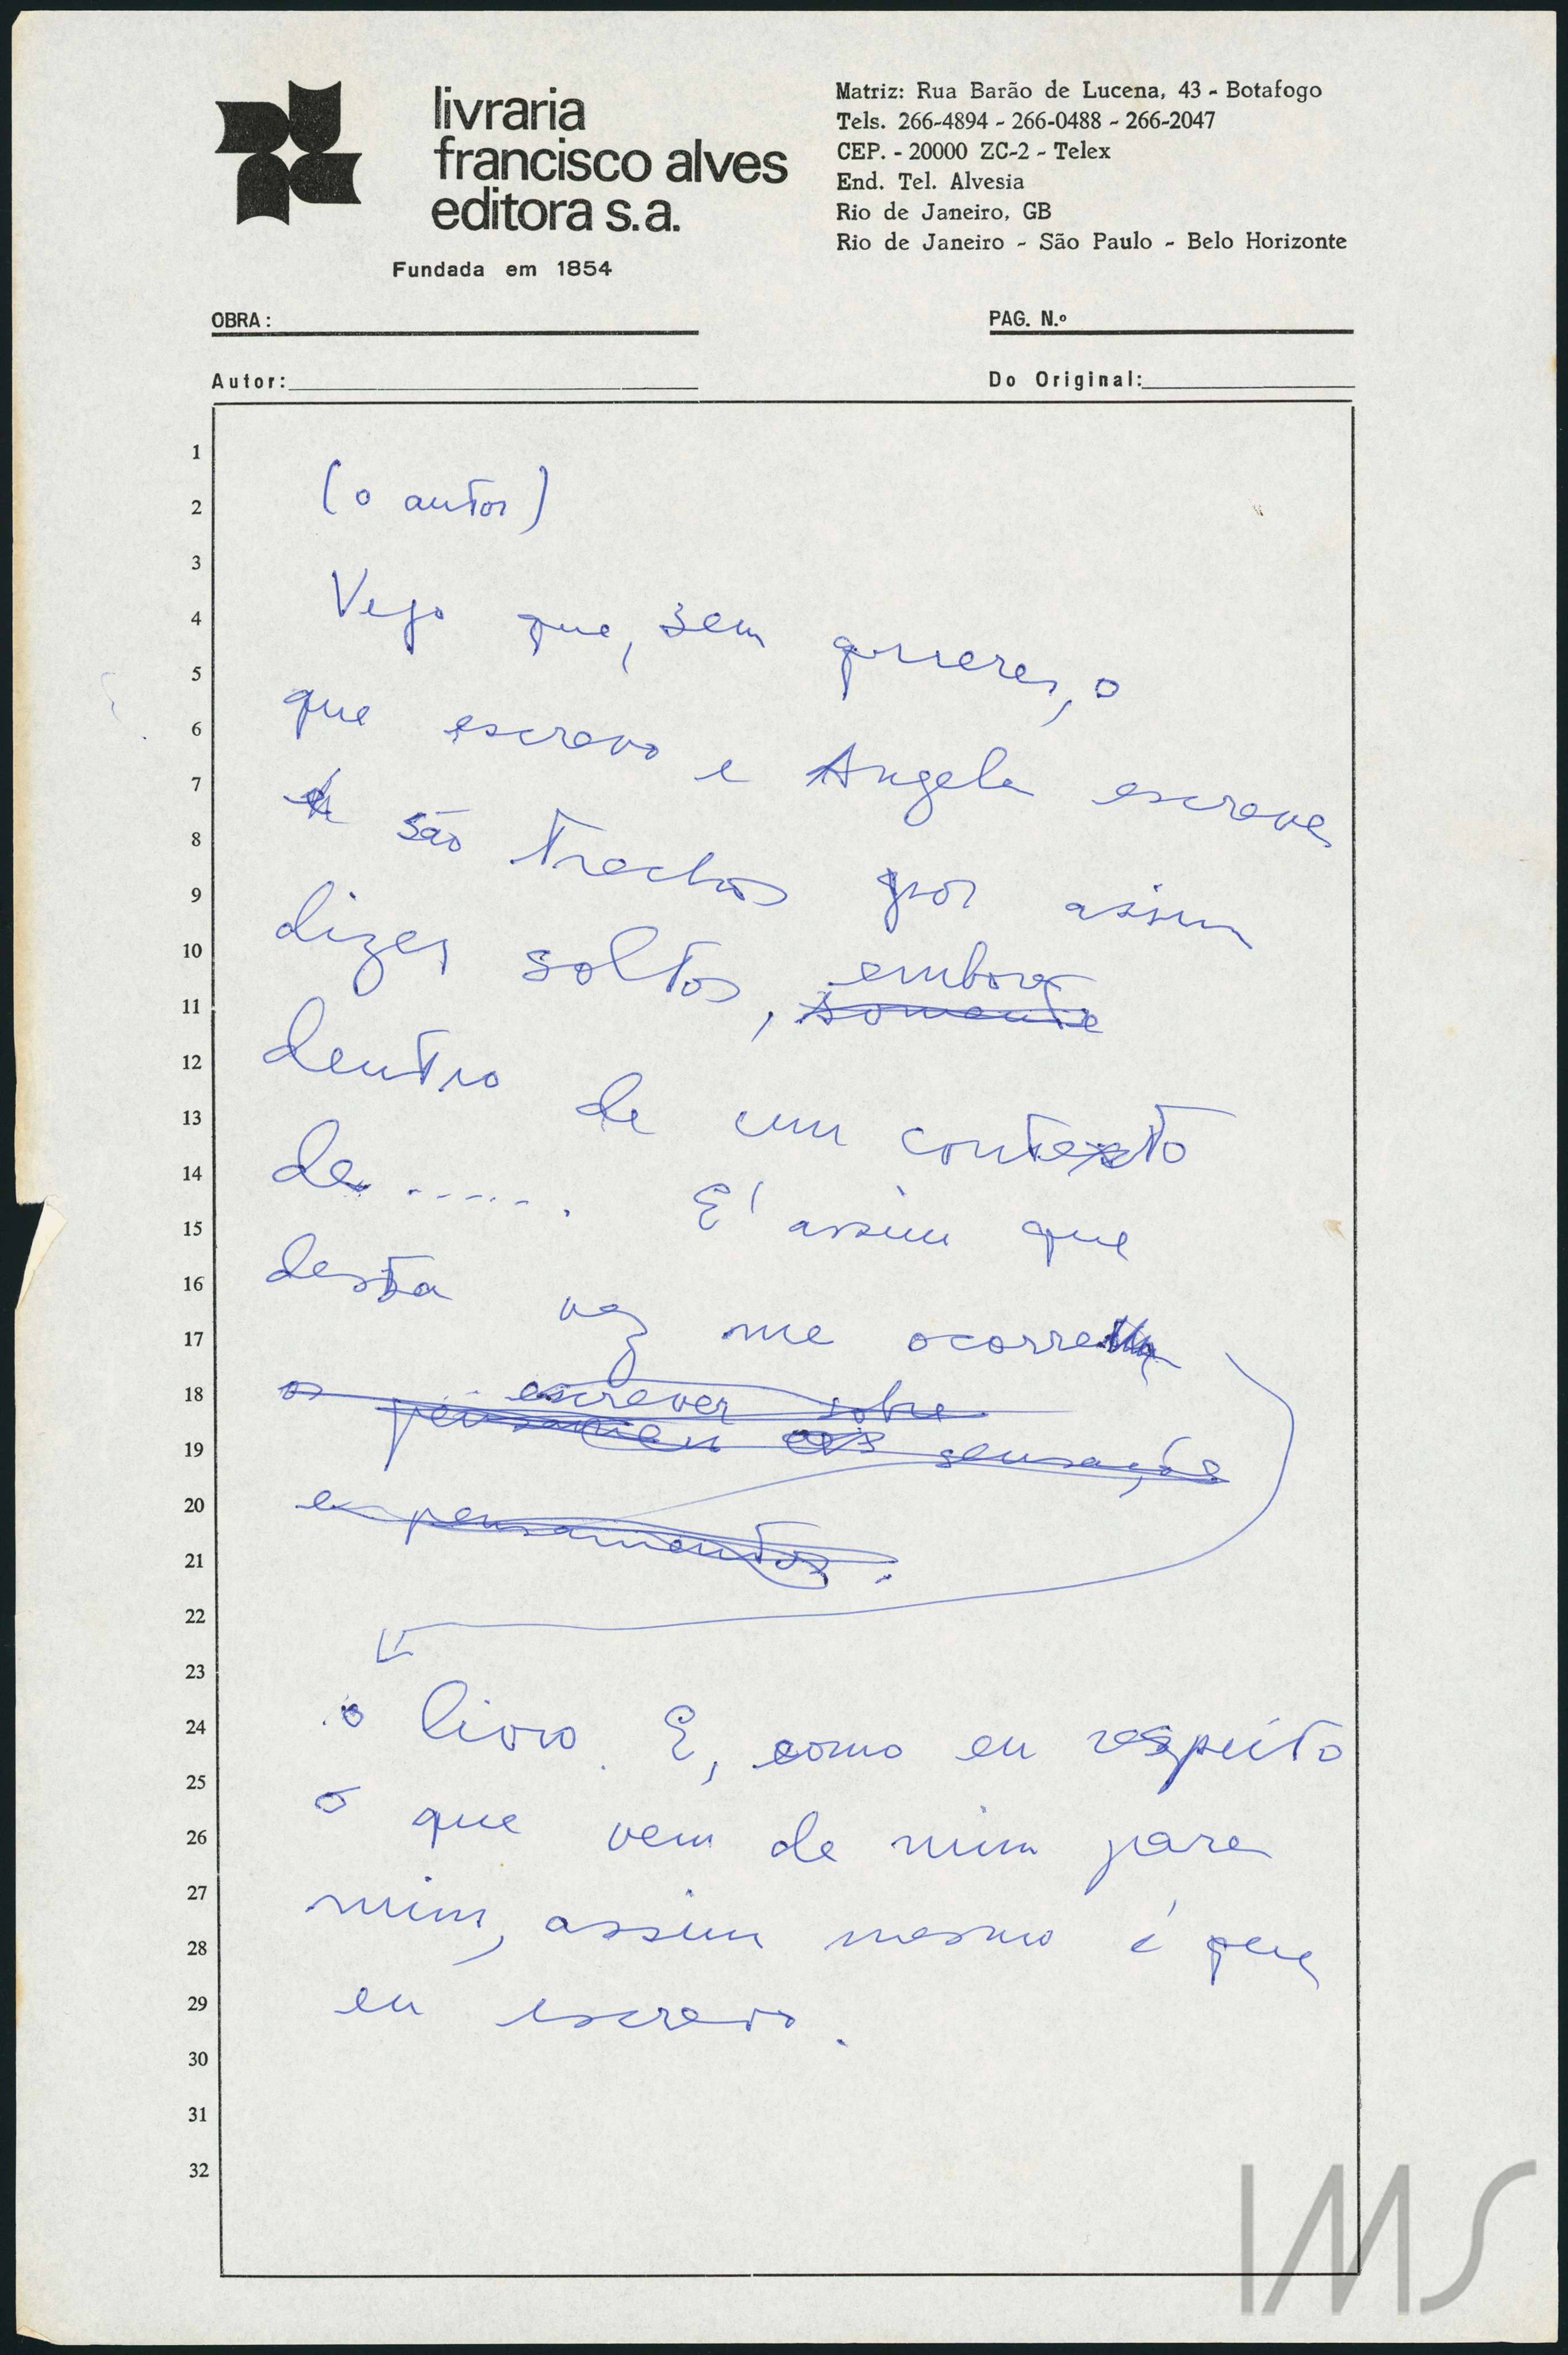 livraria
francisco alves
editora s.a.
Fundada em 1854
Matriz: Rua Barão de Lucena, 43 - Botafogo
Tels. 266-4894 - 266-0488 - 266-2047
CEP. - 20000 ZC-2 - Telex
End. Tel. Alvesia
Rio de Janeiro, GB
Rio de Janeiro - São Paulo - Belo Horizonte
OBRA:
PAG. N.º
Autor:
Do Original:
1
2
3
4
5
6
7
8
9
10
11
12
13
14
15
16
17
18
19
20
21
22
23
24
25
26
27
28
29
30
31
32
(o autor)
Vejo que, sem querer, o
que escrevo e Angela escreve
são trechos por assim
dizer soltos, embora
somente
dentro de um contexto
de ...... E' assim que
desta vez me ocorre
escrever sobre
os pensamen as sensações
e pensamentos.
o livro. E, como eu respeito
o que vem de mim para
mim, assim mesmo é que
eu escrevo.
IMS